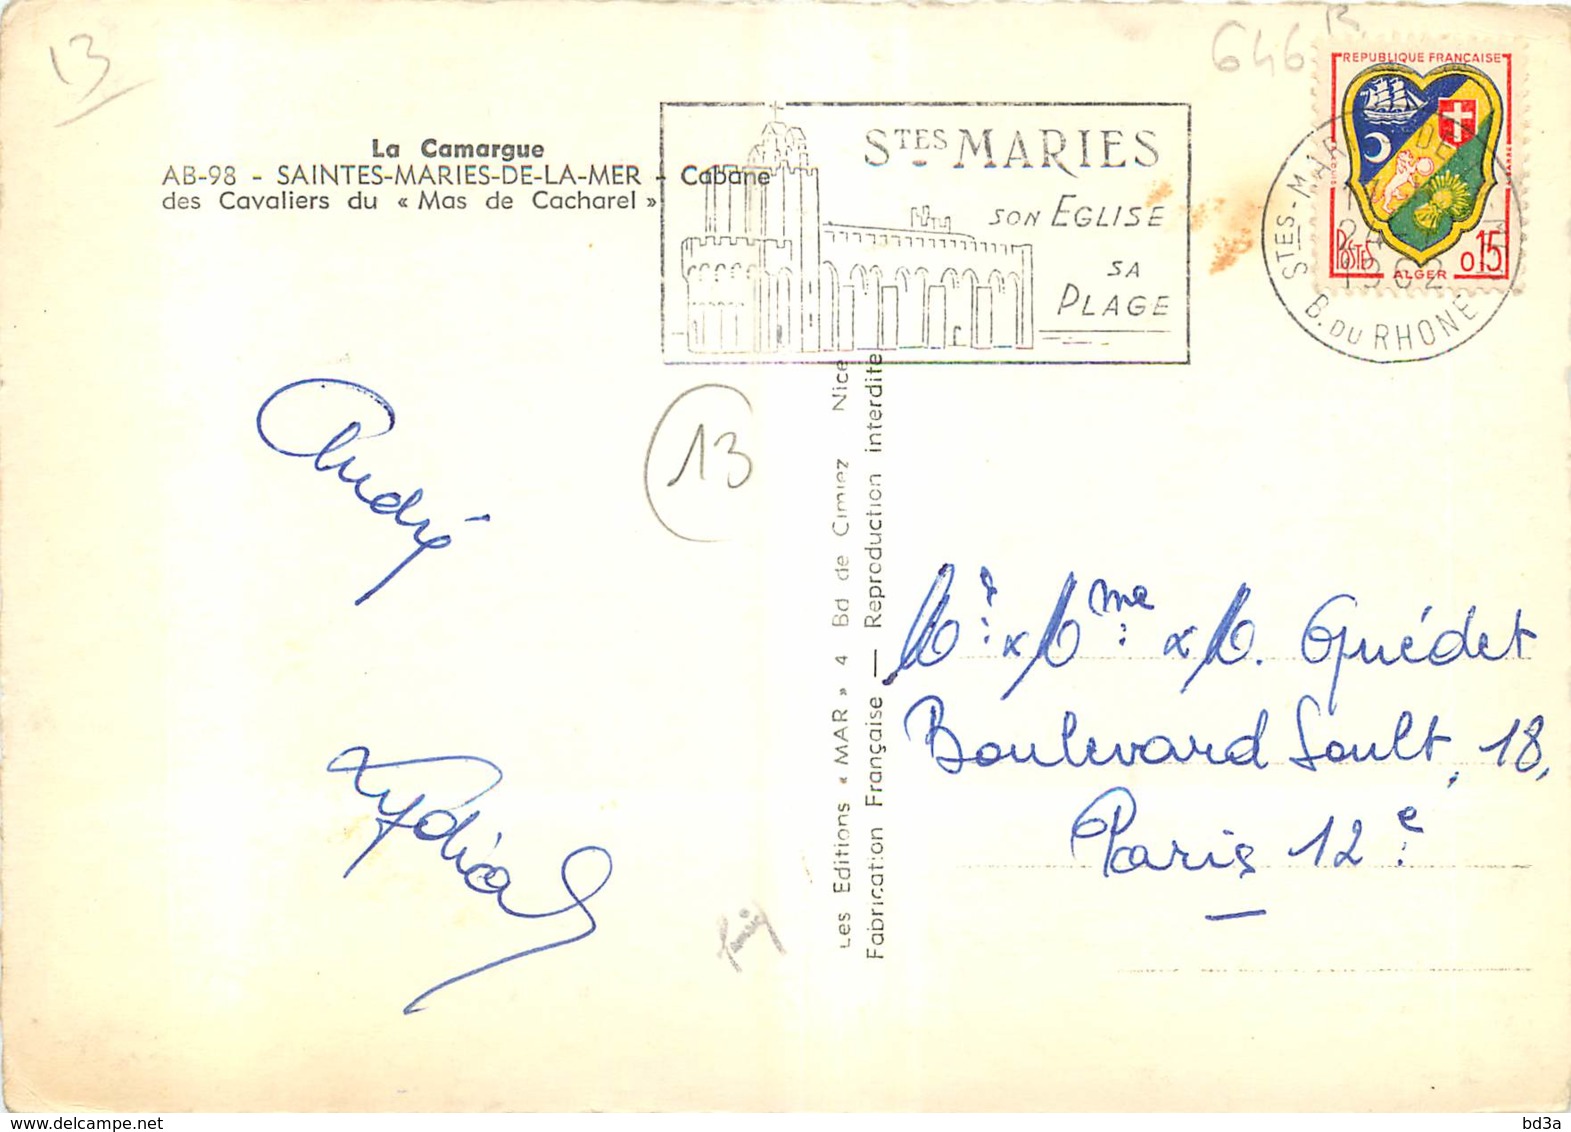 13
646 R
La Camargue
AB-98 - SAINTES-MARIES-DE-LA-MER - Cabane
des Cavaliers du « Mas de Cacharel »
STES MARIES
SON EGLISE
SA
PLAGE
REPUBLIQUE FRANÇAISE
POSTES
ALGER
0,15
STES-MAR
DE
1962
B. DU RHONE
André
13
Lydia
Les Editions « MAR » 4 Bd de Cimiez Nice
Fabrication Française — Reproduction interdite
Mr. & Mme. & M. Guédet
Boulevard Soult, 18,
Paris 12e.
bd3a